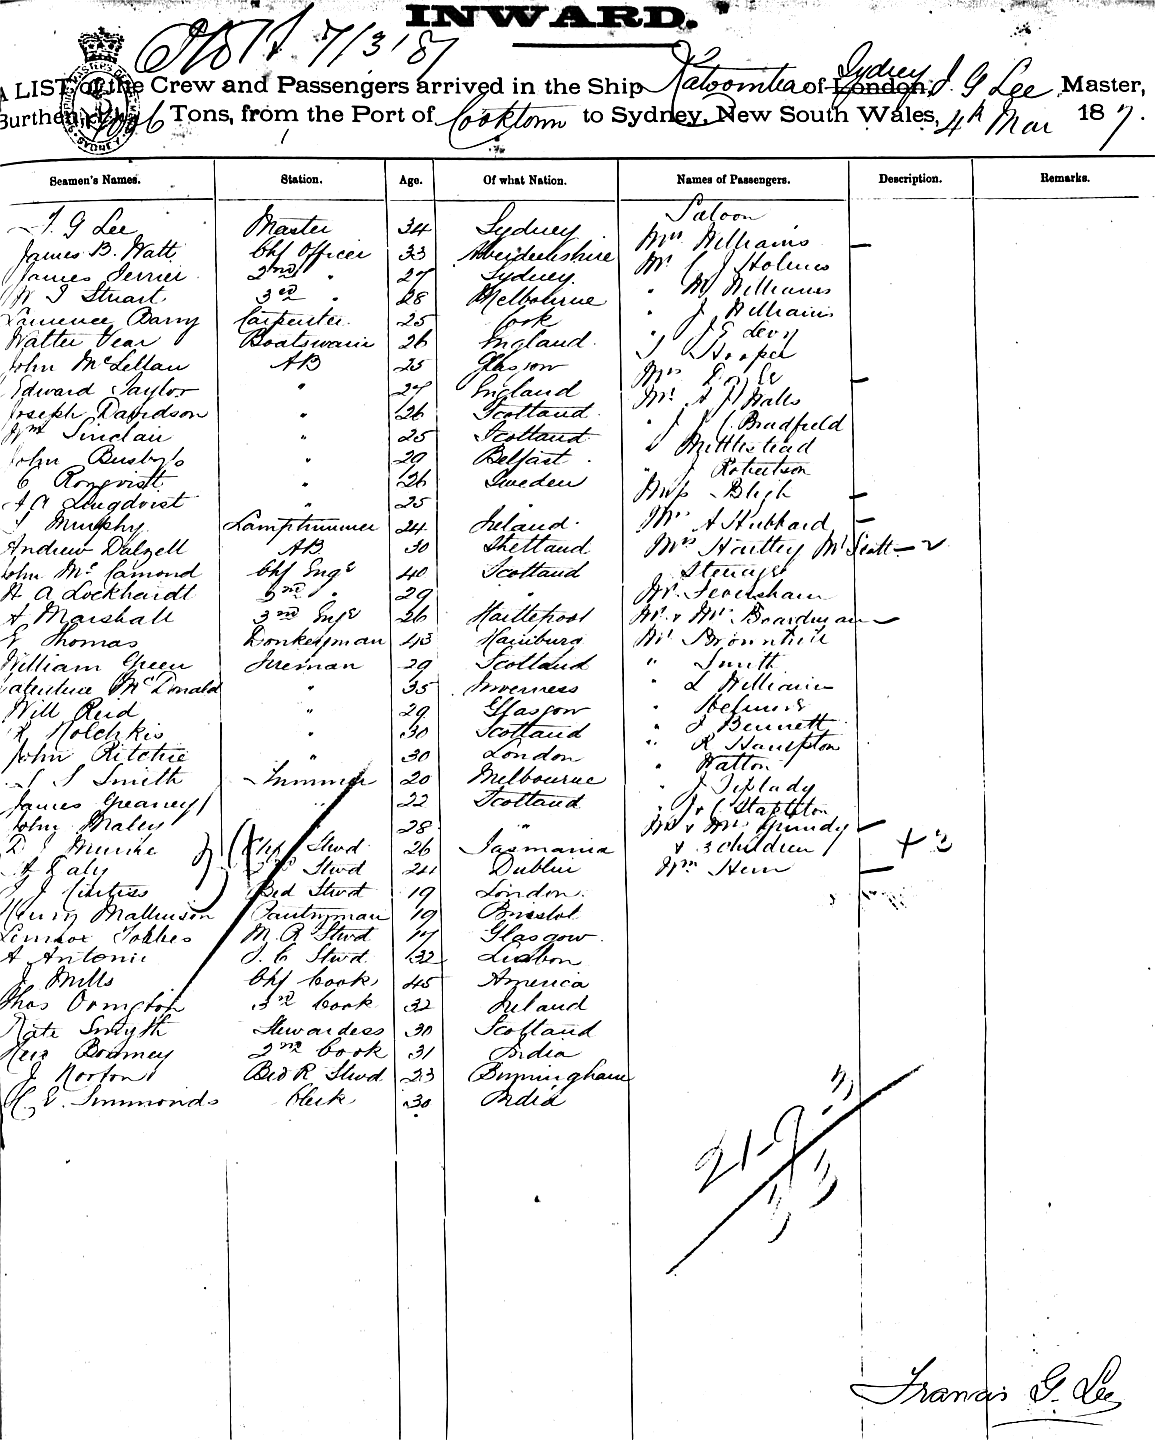 INWARD.
7/3/87
A LIST of the Crew and Passengers arrived in the Ship Katoomba of London Sydney F. G Lee Master,
Burthen Tons, from the Port of Cooktown to Sydney, New South Wales, 4th Mar 187.
SYDNEY
Seamen's Names. Station. Age. Of what Nation. Names of Passengers. Description. Remarks.
Saloon
F. G Lee Master 34 Sydney Mrs Williams —
James B. Watt Chf Officer 33 Aberdeenshire Mr C J Holmes
James Ferrier 2nd " 27 Sydney " M Williams
W J Stuart 3rd " 28 Melbourne " J Williams
Laurence Barry Carpenter 25 Cork " J E Levy
Walter Vear Boatswain 26 England. Hooper
John McLellan AB 25 Glasgow Mrs —
Edward Taylor " 27 England Mr A Walls
Joseph Davidson " 26 Scotland " J C Bradfield
Wm Sinclair " 25 Scotland " Mittlestead
John Busby " 29 Belfast " J Robertson
C Ronqvist " 26 Sweden Miss Bligh —
A A Lingqvist " 25 " Mrs A Hubbard —
T Murphy Lamptrimmer 24 Ireland. Mrs Hartley Mr Scott —
Andrew Dalzell AB 30 Shetland Steerage
John Mc Camond Chf Engr 40 Scotland Mr Feversham
H A Lockhardt 2nd " 29 " Mr & Mrs Boardman —
A Marshall 3rd Engr 26 Hartlepool Mr
E Thomas Donkeyman 43 Hamburg " Smith
William Green Fireman 29 Scotland " L Williams
Valentine McDonald " 35 Inverness "
Will Reid " 29 Glasgow " J Bennett
R Hotchkis " 30 Scotland " R Hampton
John Ritchie " 30 London " Watton
S Smith Trimmer 20 Melbourne " J Tiplady
James Greaney " 22 Scotland " J & C Stapleton
John Maley " 28 " Mr & Mrs Grundy —
Chf Stwd 26 Tasmania & 3 children + 3
A Daly 2nd Stwd 24 Dublin Wm —
J J Curtiss Bed Stwd 19 London.
Henry Mallinson Pantryman 19 Bristol
Lennox Forbes M. R Stwd 17 Glasgow.
A Antonio Stwd 32 Lisbon
J Mills Chf Cook 45 America
Thos Ormston 3rd Cook 32 Ireland
Kate Smyth Stewardess 30 Scotland
2nd Cook 31 India
J Norton Bed R Stwd 23 Birmingham
E. Simmonds Clerk 30 India
Francis G. Lee